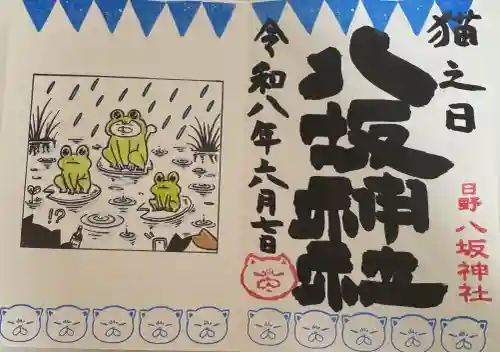 猫之日
八坂神社
令和八年六月七日
日野八坂神社
!?